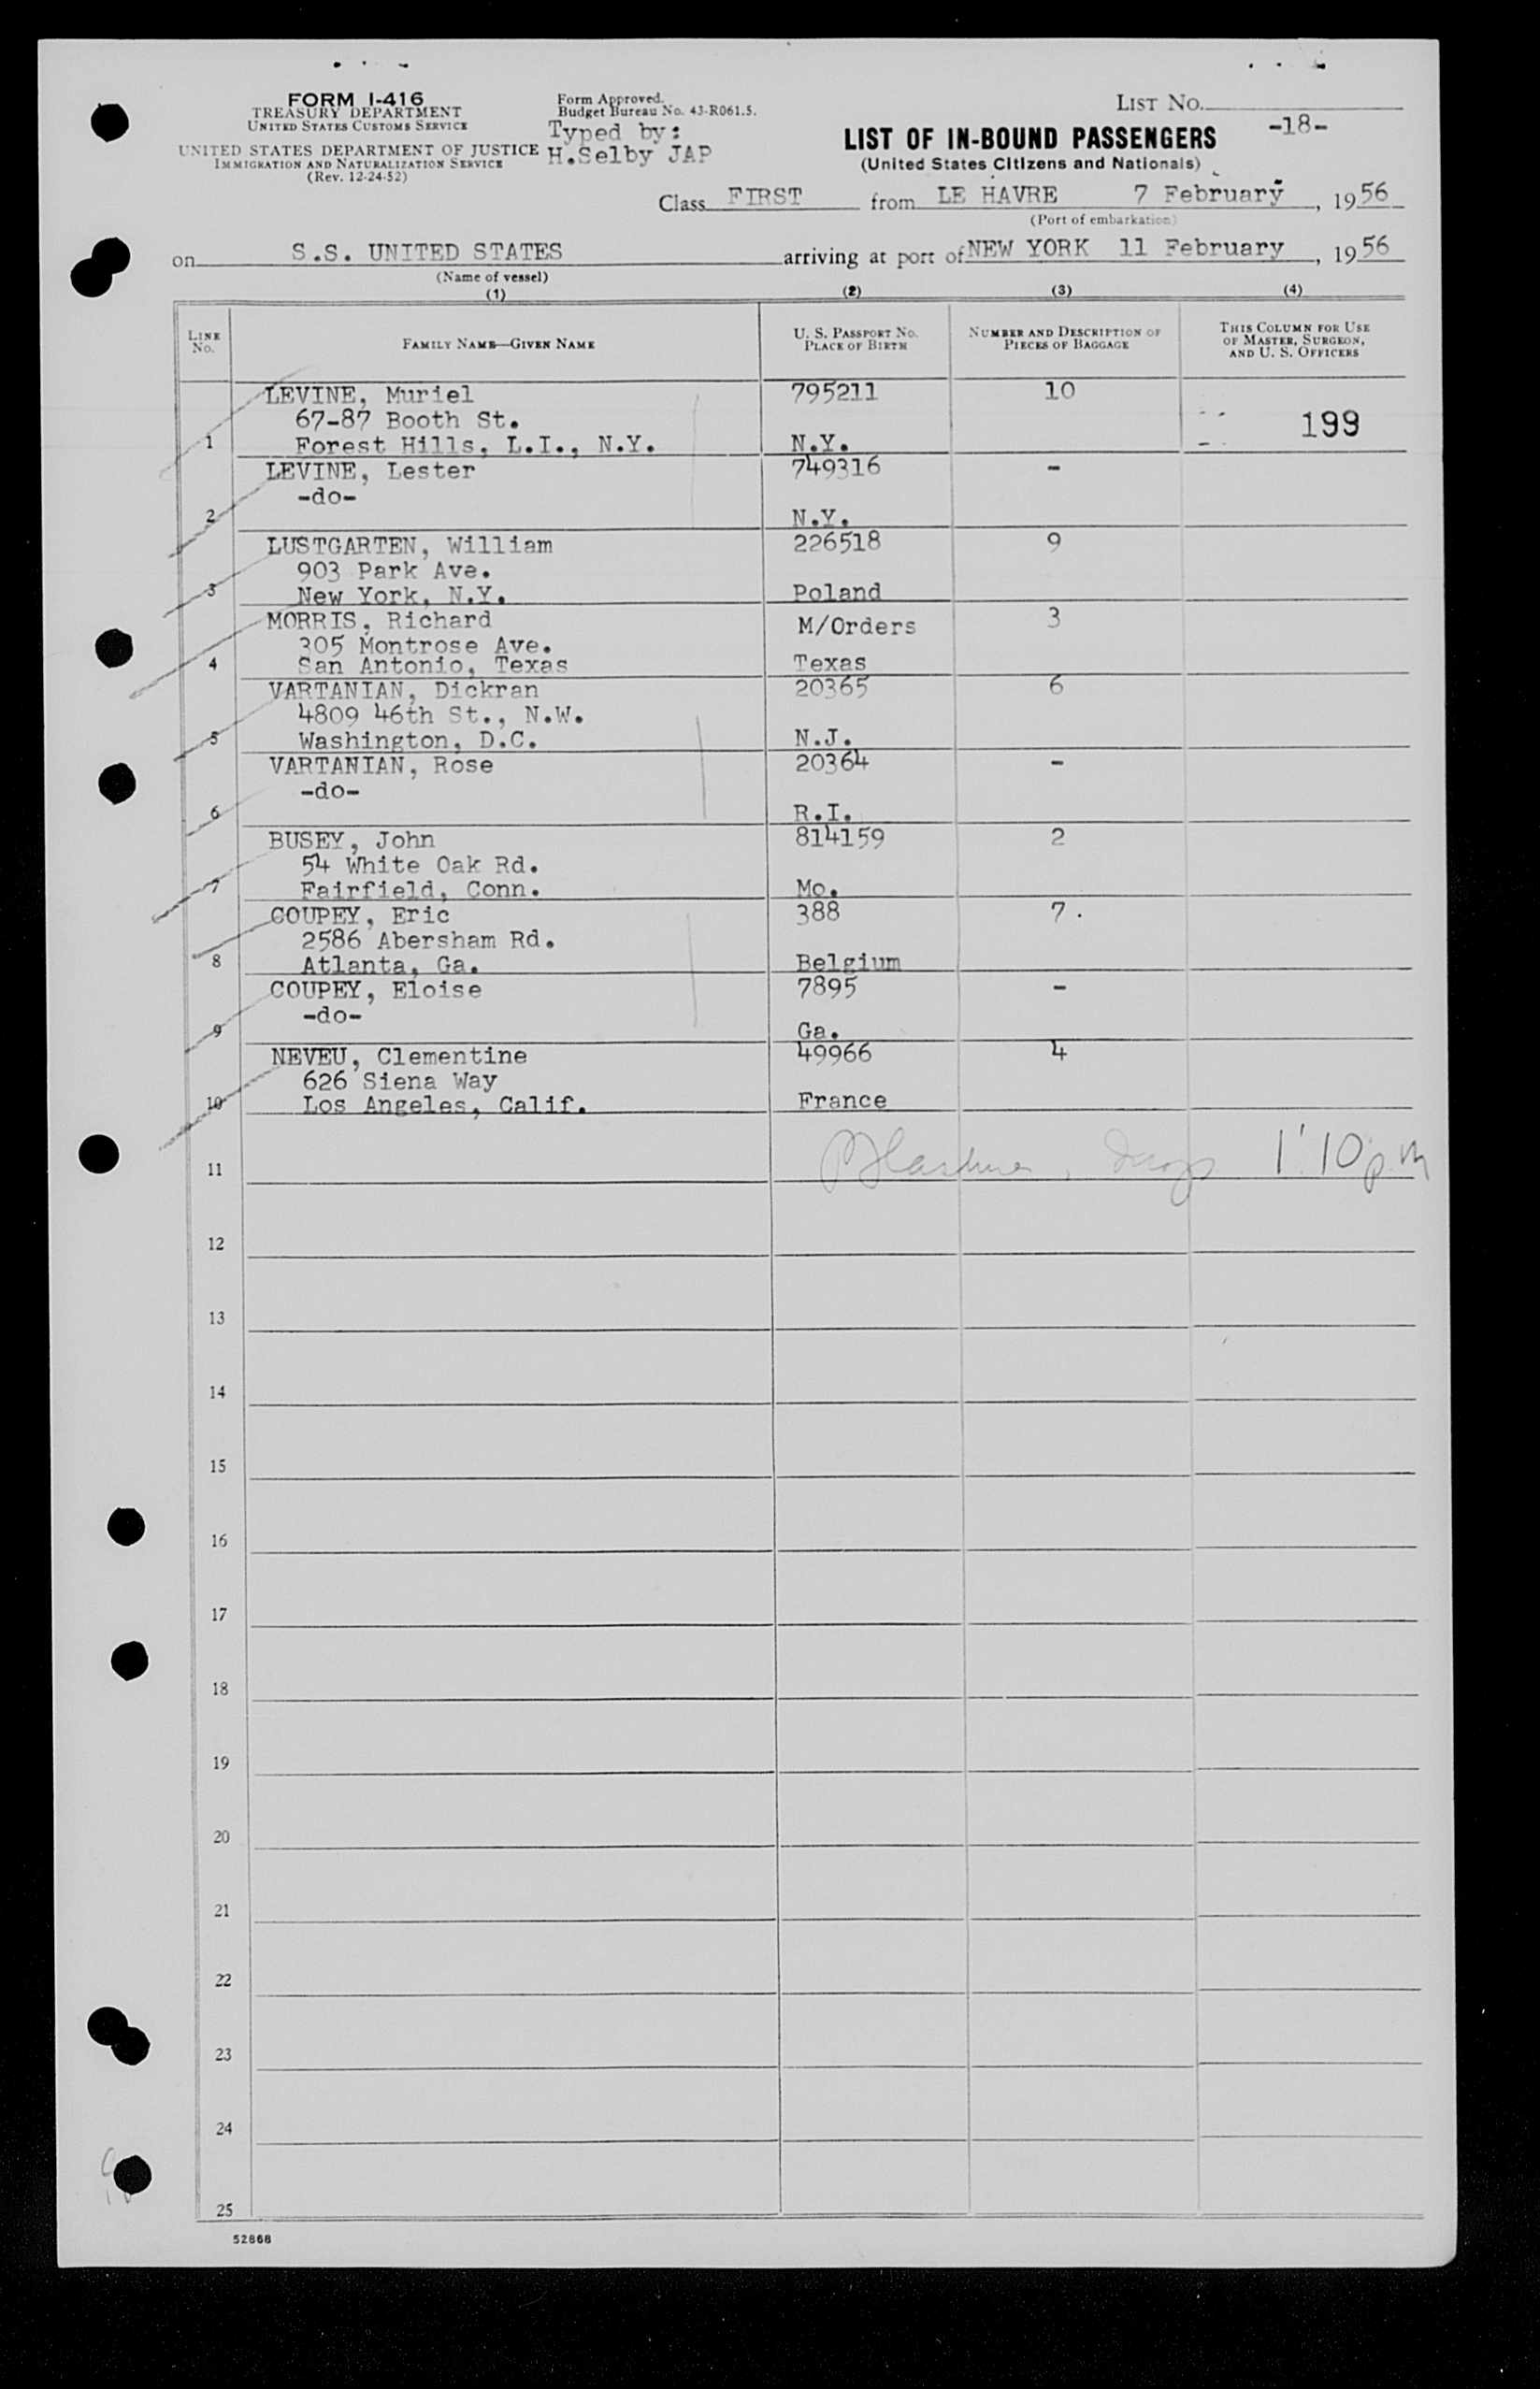 FORM I-416
TREASURY DEPARTMENT
UNITED STATES CUSTOMS SERVICE
UNITED STATES DEPARTMENT OF JUSTICE
IMMIGRATION AND NATURALIZATION SERVICE
(Rev. 12-24-52)
Form Approved.
Budget Bureau No. 43-R061.5.
Typed by:
H.Selby JAP
LIST NO.
-18-
LIST OF IN-BOUND PASSENGERS
(United States Citizens and Nationals)
Class FIRST from LE HAVRE 7 February, 1956
(Port of embarkation)
on S.S. UNITED STATES arriving at port of NEW YORK 11 February, 1956
(Name of vessel)
(1) (2) (3) (4)
LINE No. FAMILY NAME—GIVEN NAME U. S. PASSPORT NO. PLACE OF BIRTH NUMBER AND DESCRIPTION OF PIECES OF BAGGAGE THIS COLUMN FOR USE OF MASTER, SURGEON, AND U. S. OFFICERS
LEVINE, Muriel 795211 10
67-87 Booth St. 199
1 Forest Hills, L.I., N.Y. N.Y.
LEVINE, Lester 749316 -
-do-
2 N.Y.
LUSTGARTEN, William 226518 9
903 Park Ave.
3 New York, N.Y. Poland
MORRIS, Richard M/Orders 3
305 Montrose Ave.
4 San Antonio, Texas Texas
VARTANIAN, Dickran 20365 6
4809 46th St., N.W.
5 Washington, D.C. N.J.
VARTANIAN, Rose 20364 -
-do-
6 R.I.
BUSEY, John 814159 2
54 White Oak Rd.
7 Fairfield, Conn. Mo.
COUPEY, Eric 388 7.
2586 Abersham Rd.
8 Atlanta, Ga. Belgium
COUPEY, Eloise 7895 -
-do-
9 Ga.
NEVEU, Clementine 49966 4
626 Siena Way
10 Los Angeles, Calif. France
11 1:10 p.m
12
13
14
15
16
17
18
19
20
21
22
23
24
25
52868